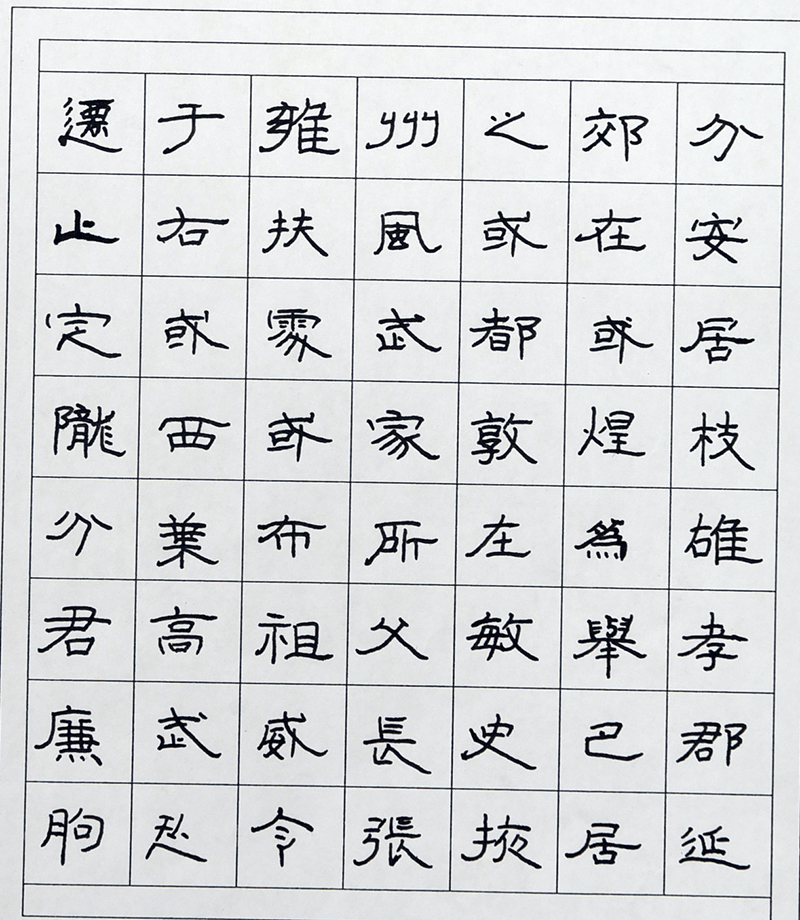 遷于雍州之郊分
止右扶風或在安
定或處武都或居
隴西或家敦煌枝
分葉布所在爲雄
君高祖父敏舉孝
廉武威長史巴郡
朐忍令張掖居延